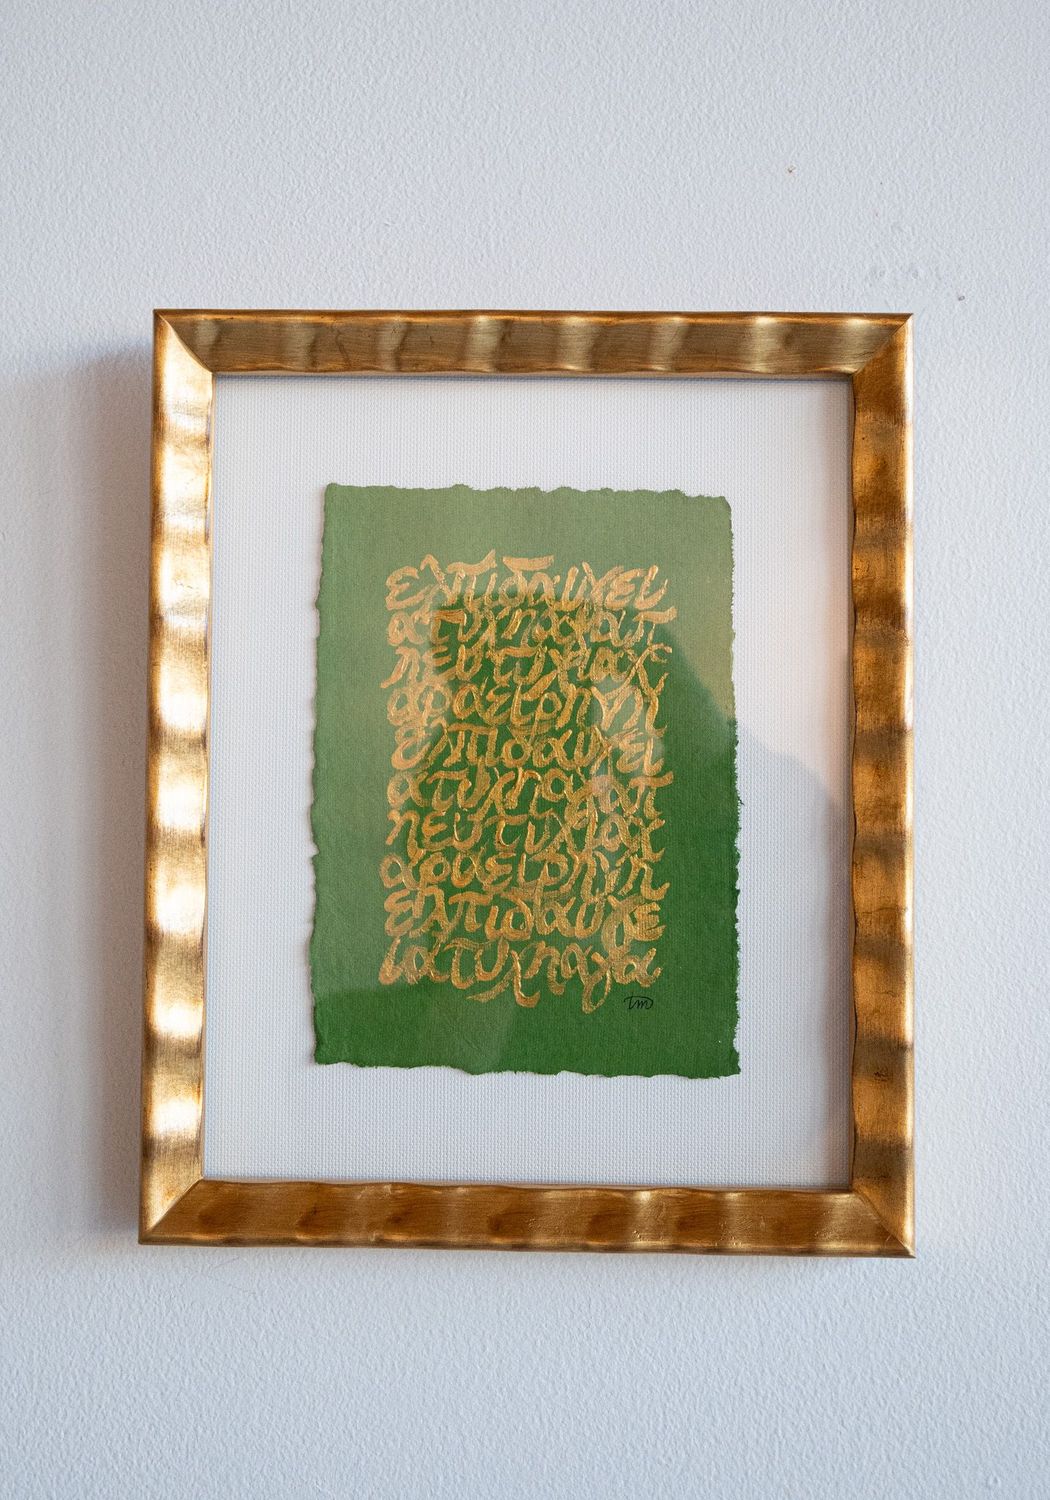 ελπιδαυγει
ατυχηαγαπ
ηευτυχιαχ
αραειρηνη
ελπιδαυγει
ατυχηαγαπ
ηευτυχιαχ
αραειρηνη
ελπιδαυγε
ιατυχηαγα